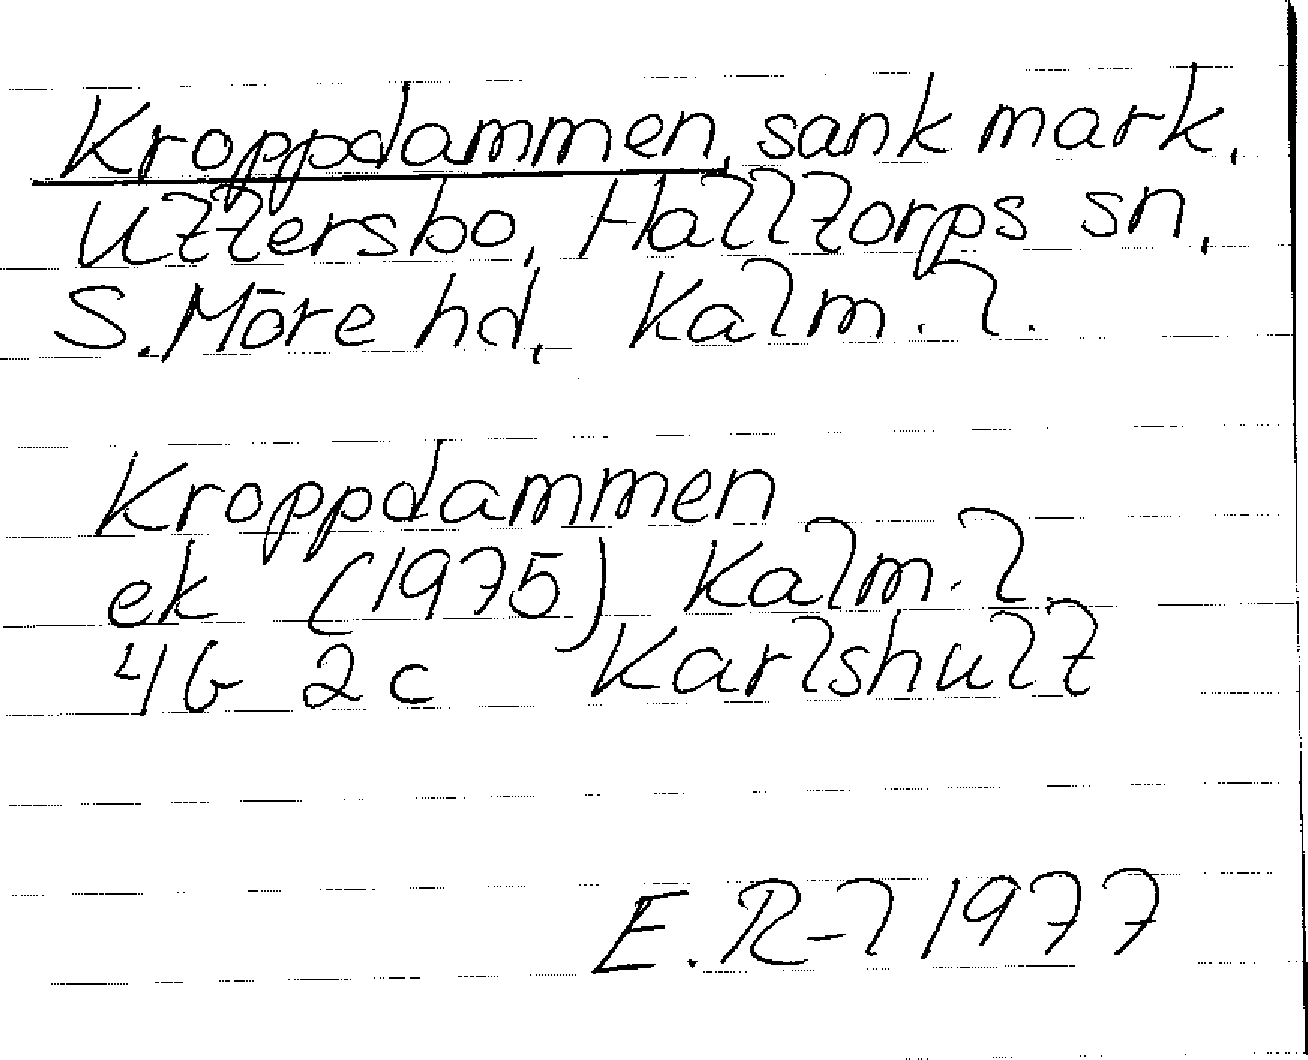 Kroppdammen, sank mark,
Uttersbo, Halltorps sn,
S. Möre hd, Kalm. l.
Kroppdammen
ek (1975) Kalm. l.
4G 2c Karlshult
E. R-l 1977